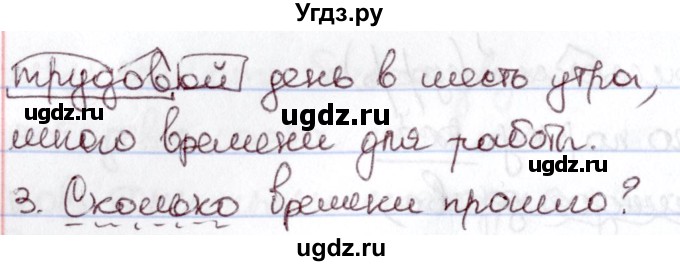 Угдз.ру
трудовой день в шесть утра,
ugdz.ru ugdz.ru
много времени для работы.
ugdz.ru
3. Сколько времени прошло?
ugdz.ru ugdz.ru